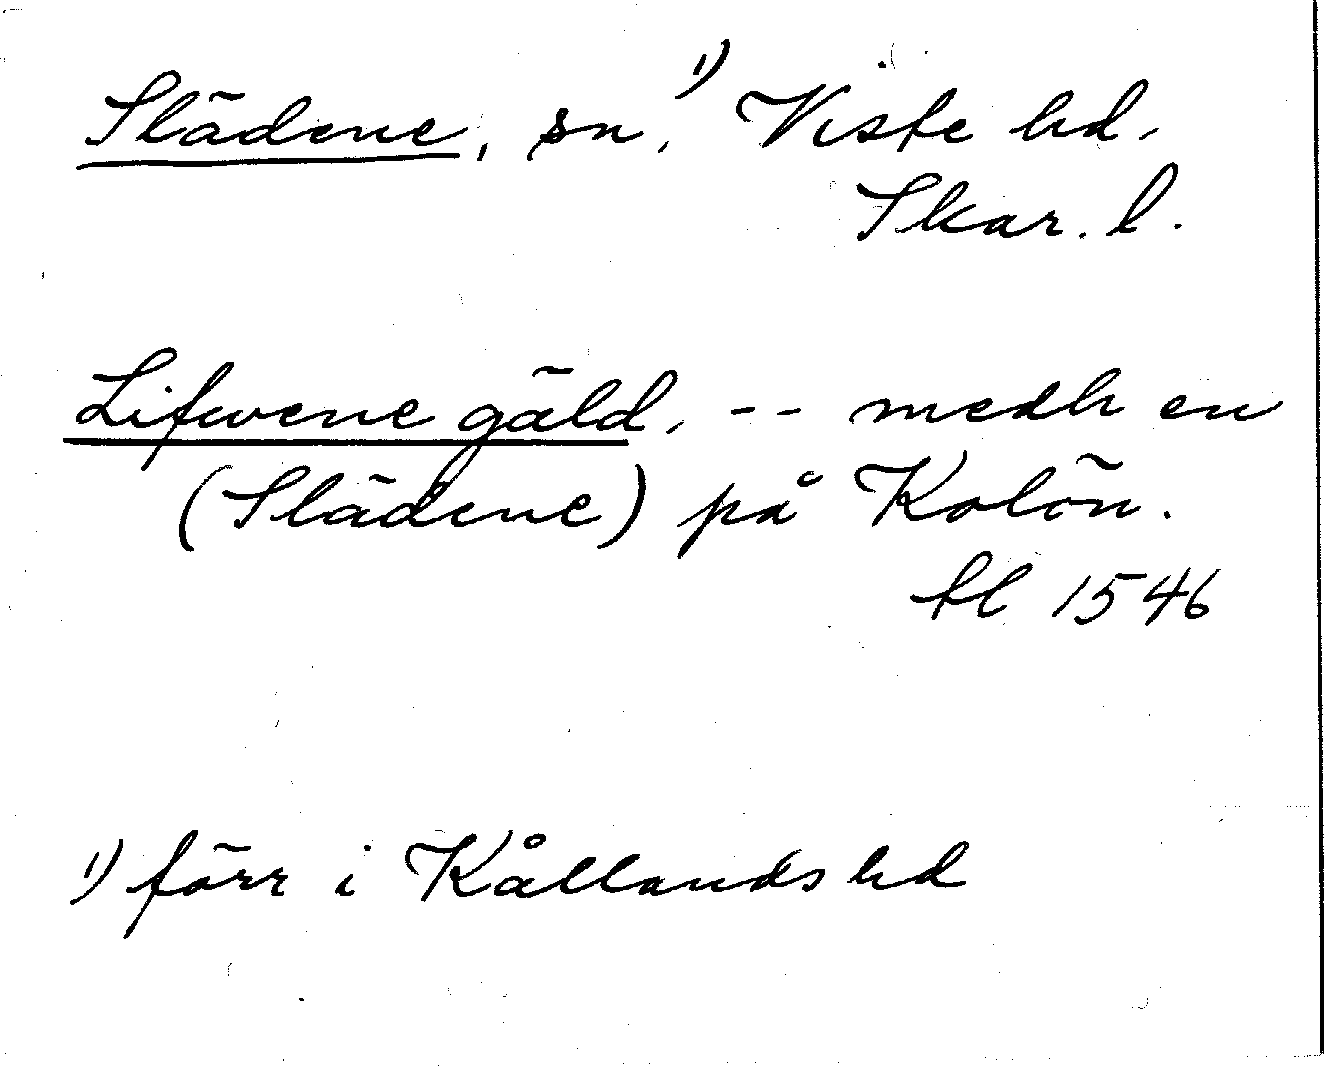 Slädene, sn, 1) Viste hd,
Skar. l.
Lifwene gäld, -- medh en
(Slädene) på Kolön.
fl 1546
1) förr i Kållands hd